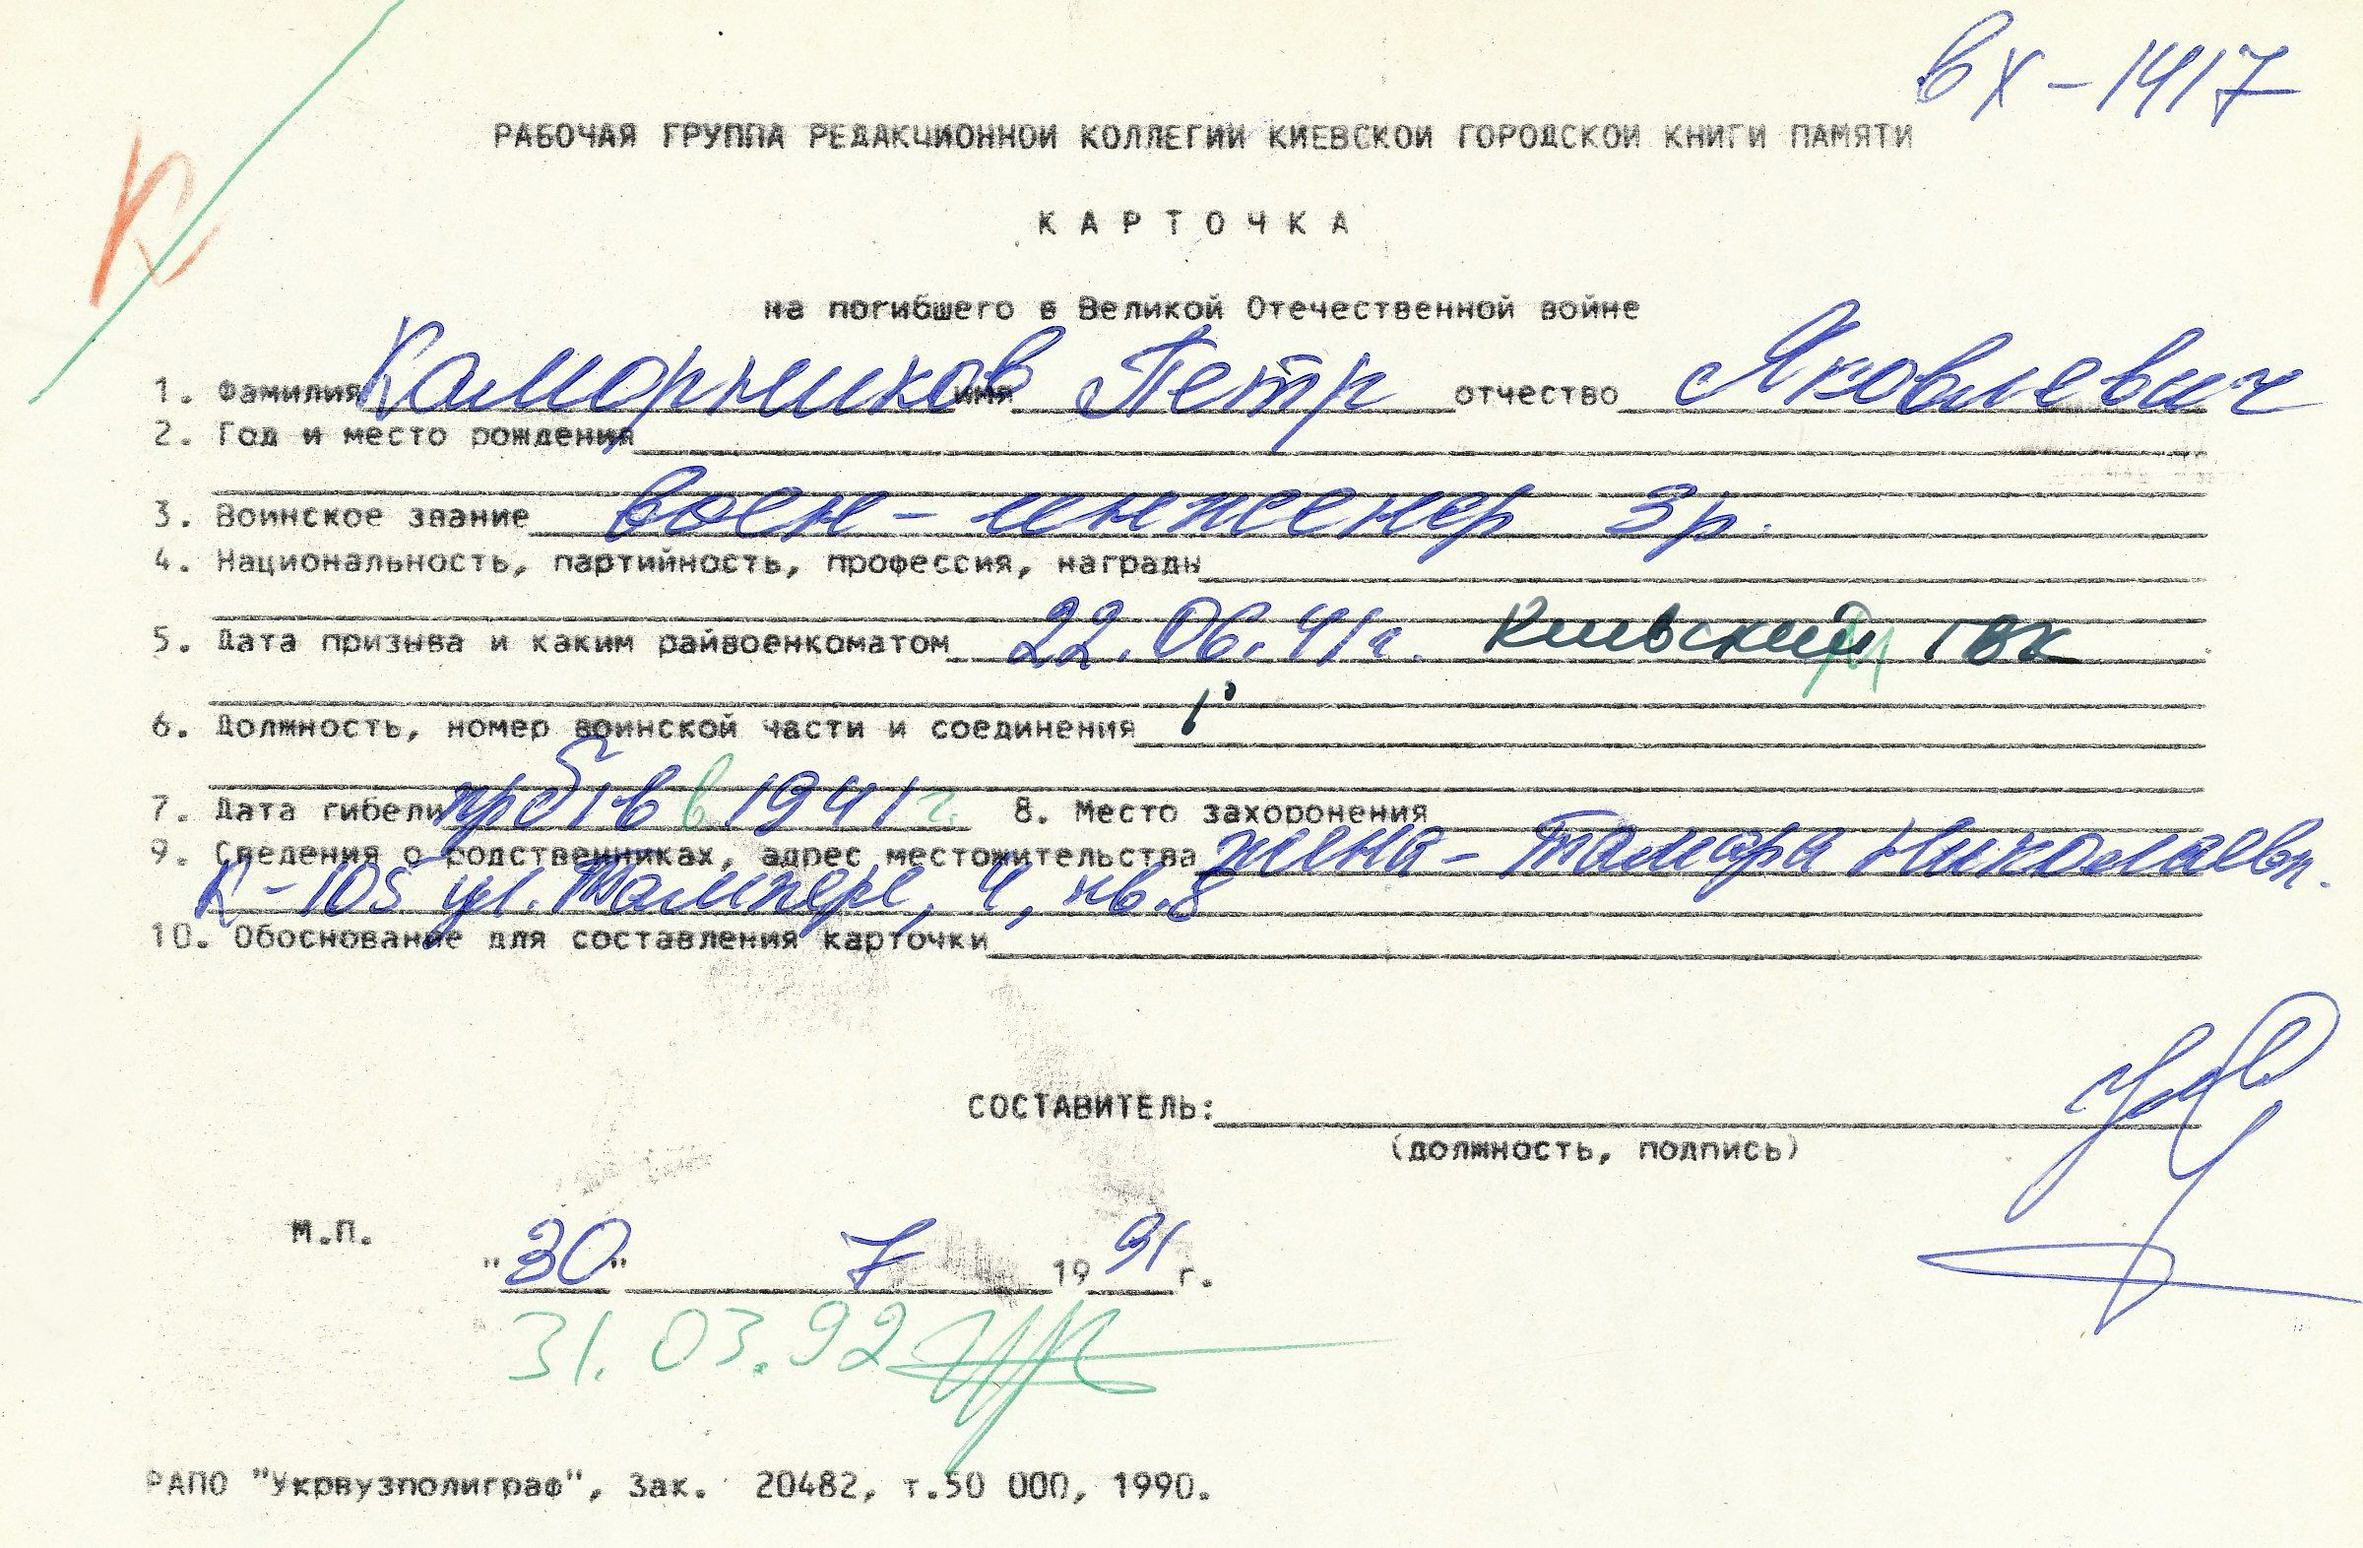 вх-1417
РАБОЧАЯ ГРУППА РЕДАКЦИОННОЙ КОЛЛЕГИИ КИЕВСКОЙ ГОРОДСКОЙ КНИГИ ПАМЯТИ
К
КАРТОЧКА
на погибшего в Великой Отечественной войне
1. Фамилия Каморников имя Петр отчество Яковлевич
2. Год и место рождения
3. Воинское звание воен-инженер 3р.
4. Национальность, партийность, профессия, награды
5. Дата призыва и каким райвоенкоматом 22.06.41г. Киевский ГВК
6. Должность, номер воинской части и соединения
7. Дата гибели в 1941 г. 8. Место захоронения
9. Сведения о родственниках, адрес местожительства жена - Тамара Николаевн.
К-105 ул. Тампере, 4, кв.8
10. Обоснование для составления карточки
СОСТАВИТЕЛЬ:
(должность, подпись)
М.П.
"30" 7 1991 г.
31.03.92
РАПО "Укрвузполиграф", Зак. 20482, т.50 000, 1990.